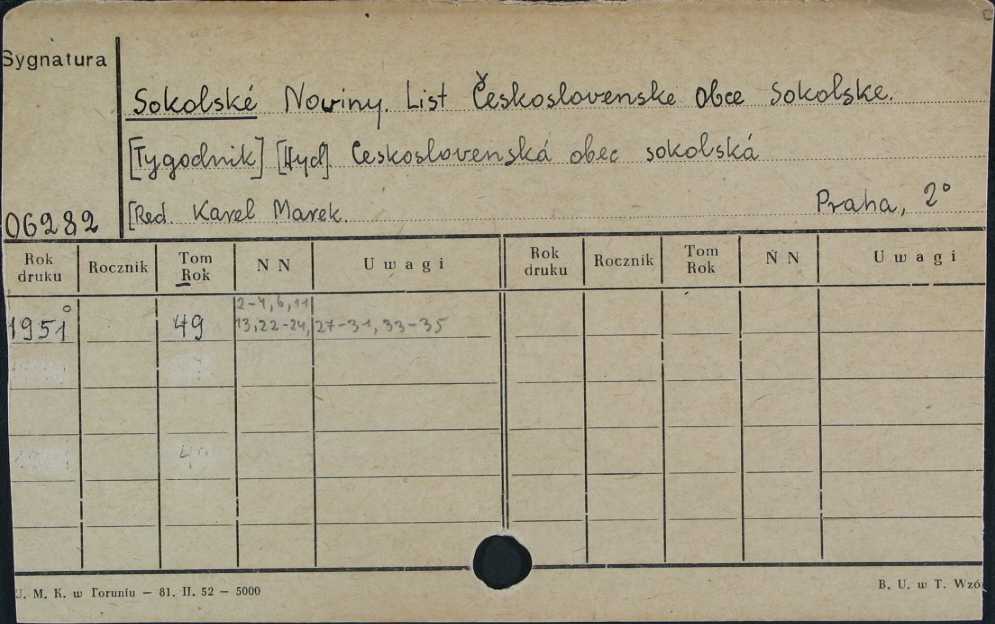 Sygnatura
Sokolské Noviny. List Československe obce Sokolske.
[Tygodnik] [Wyd]. Československá obec sokolská
06282
[Red. Karel Marek.
Praha, 2°
Rok druku Rocznik Tom Rok N N Uwagi Rok druku Rocznik Tom Rok N N Uwagi
2-4, 6, 11
1951° 49 13, 22-24, 27-31, 33-35
U. M. K. w Toruniu — 81. II. 52 — 5000
B. U. w T. Wzó